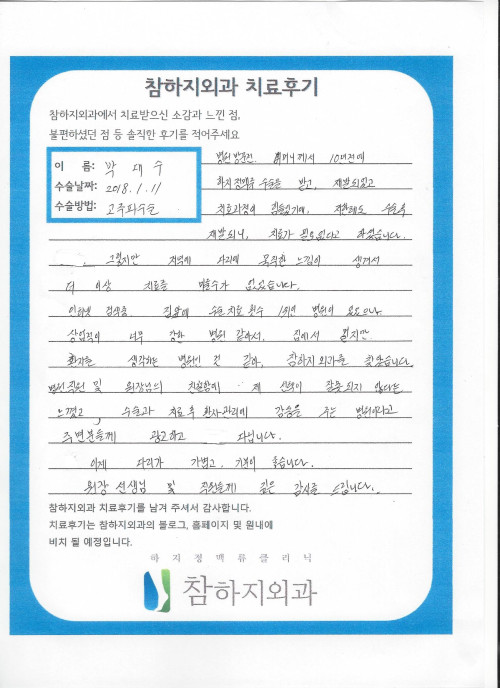 참하지외과 치료후기
참하지외과에서 치료받으신 소감과 느낀 점,
불편하셨던 점 등 솔직한 후기를 적어주세요
이 름: 박 대 수
수술날짜: 2018. 1. 11
수술방법: 고주파수술
병원 방문전 어머니께서 10년전에
하지정맥류 수술을 받고, 재발되었고
치료과정이 힘들었기에, 저한테도 수술후
재발되니, 치료가 필요없다고 하셨습니다.
그렇지만 저녁에 다리에 묵직한 느낌이 생겨서
더 이상 치료를 미룰수가 없었습니다.
인터넷 검색중 길음에 수술치료 횟수 1위인 병원이 있으나
상업적이 너무 강한 병원 같아서. 집에서 멀지만
환자를 생각하는 병원인 것 같아, 참하지외과를 찾았습니다.
병원직원 및 원장님의 친절함에 제 선택이 잘못되지 않다는
느꼈고, 수술과 치료후 환자관리에 감동을 주는 병원이라고
주변분들께 광고하고 다닙니다.
이제 다리가 가볍고. 기분이 좋습니다.
원장 선생님 및 직원들께 깊은 감사를 드립니다.
참하지외과 치료후기를 남겨 주셔서 감사합니다.
치료후기는 참하지외과의 블로그, 홈페이지 및 원내에
비치 될 예정입니다.
하지정맥류클리닉
참하지외과